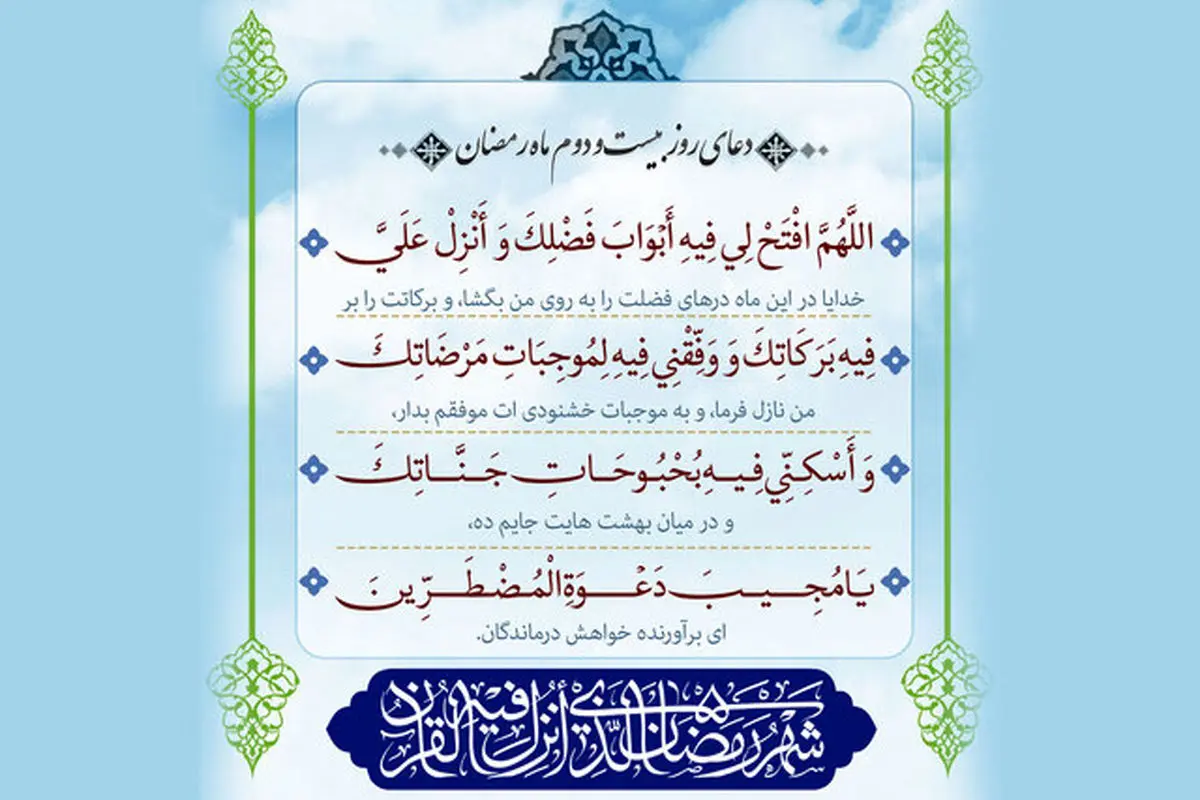 دعای روز بیست و دوم ماه رمضان
اللَّهُمَّ افْتَحْ لِي فِيهِ أَبْوَابَ فَضْلِكَ وَ أَنْزِلْ عَلَيَّ
خدایا در این ماه درهای فضلت را به روی من بگشا، و برکاتت را بر
فِيهِ بَرَكَاتِكَ وَ وَفِّقْنِي فِيهِ لِمُوجِبَاتِ مَرْضَاتِكَ
من نازل فرما، و به موجبات خشنودی ات موفقم بدار،
وَ أَسْكِنِّي فِيهِ بُحْبُوحَاتِ جَنَّاتِكَ
و در میان بهشت هایت جایم ده،
يَا مُجِيبَ دَعْوَةِ الْمُضْطَرِّينَ
ای برآورنده خواهش درماندگان.
شَهْرُ رَمَضَانَ الَّذِي أُنْزِلَ فِيهِ الْقُرْآنُ